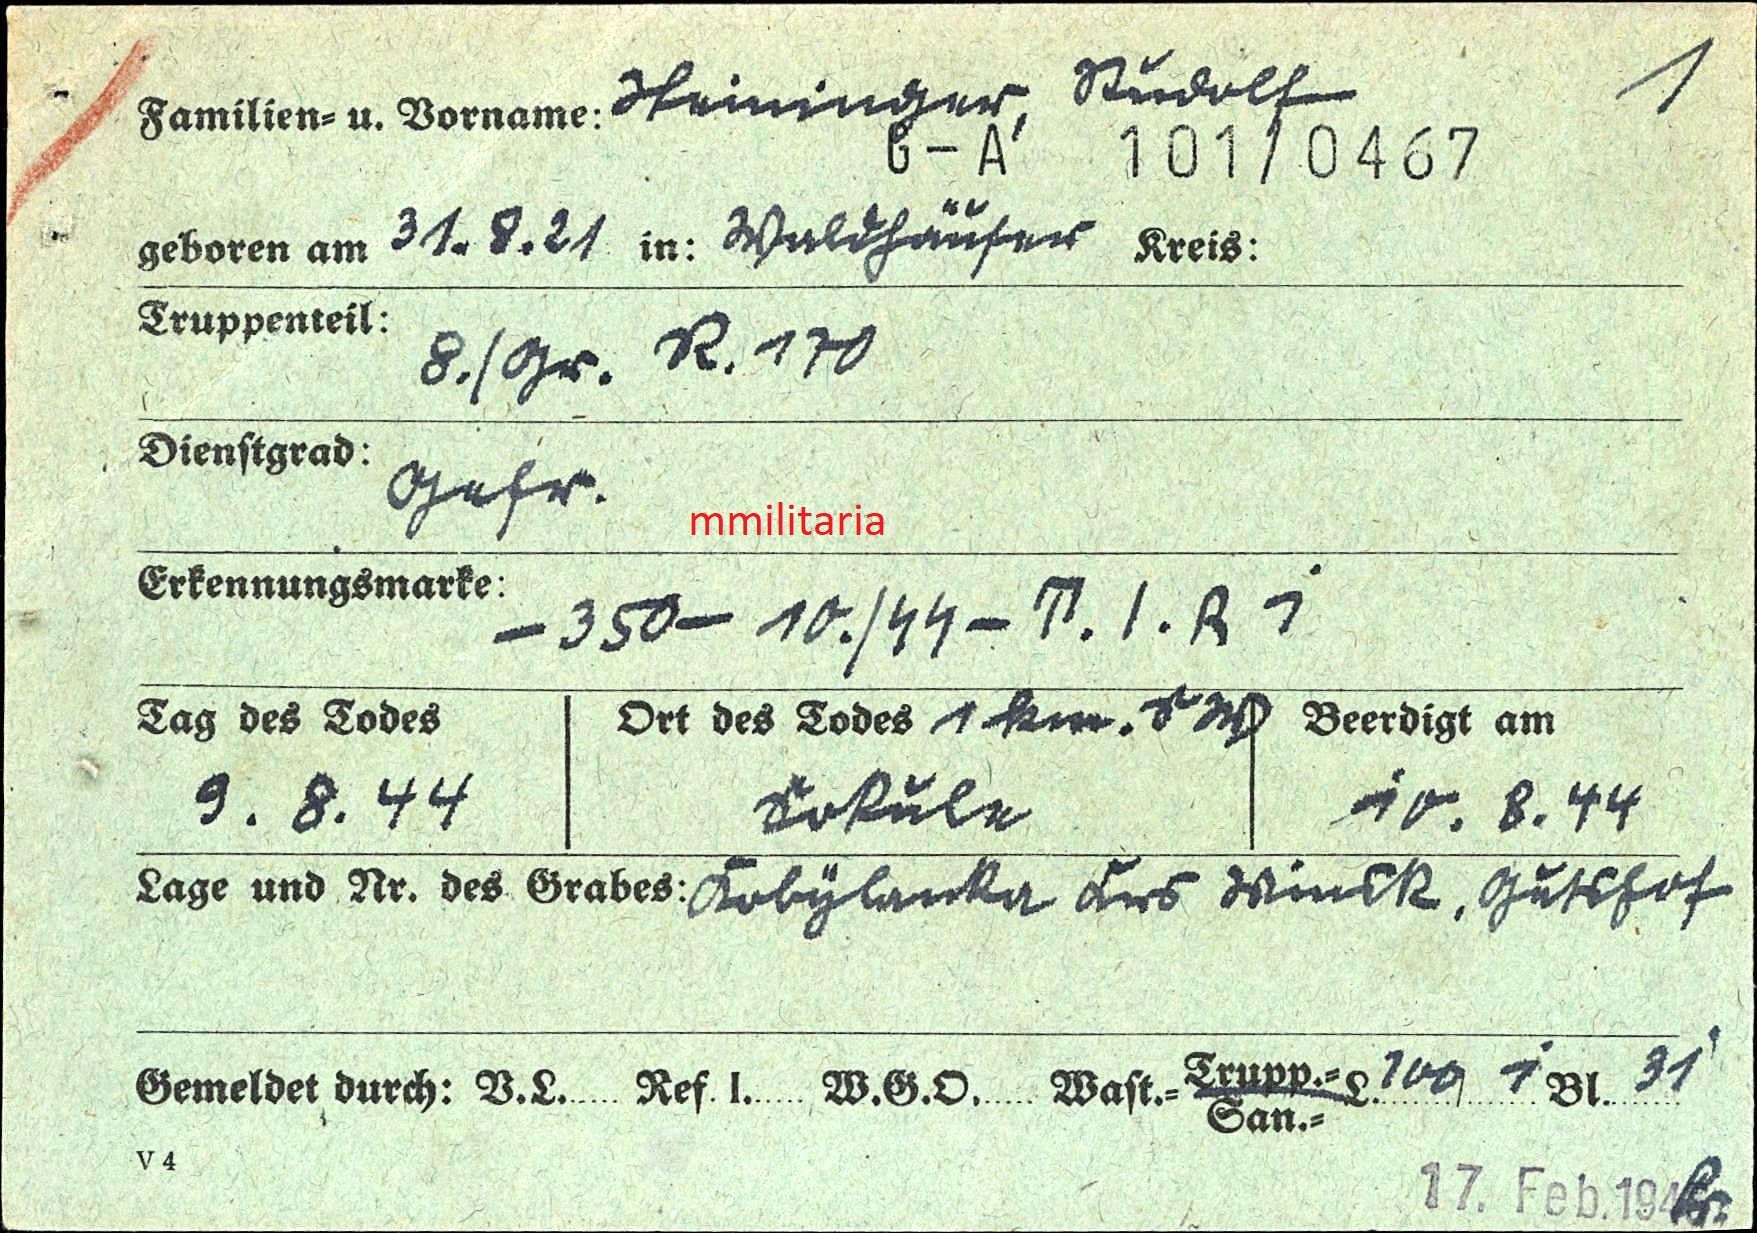 1
Familien- u. Vorname: Steininger, Rudolf
G-A 101/0467
geboren am 31.8.21 in: Waldhäuser Kreis:
Truppenteil:
8./Gr. R. 170
Dienstgrad:
Gefr.
mmilitaria
Erkennungsmarke:
- 350 - 10./44 -
Tag des Todes Ort des Todes 1 km. SW Beerdigt am
9. 8. 44 Sokule 10. 8. 44
Lage und Nr. des Grabes: Kobylanka Krs Minsk, Gutshof
Gemeldet durch: V.L. Ref I. W.G.O. Wast.- Trupp.- L. 700 1 Bl. 31
San.-
V 4
17. Feb. 194